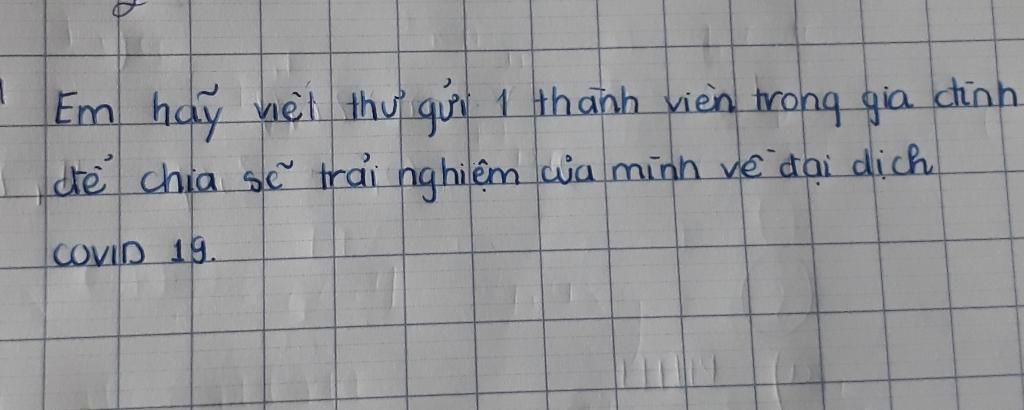 Em hãy viết thư gửi 1 thành viên trong gia đình
để chia sẽ trải nghiệm của mình về đại dịch
COVID 19.